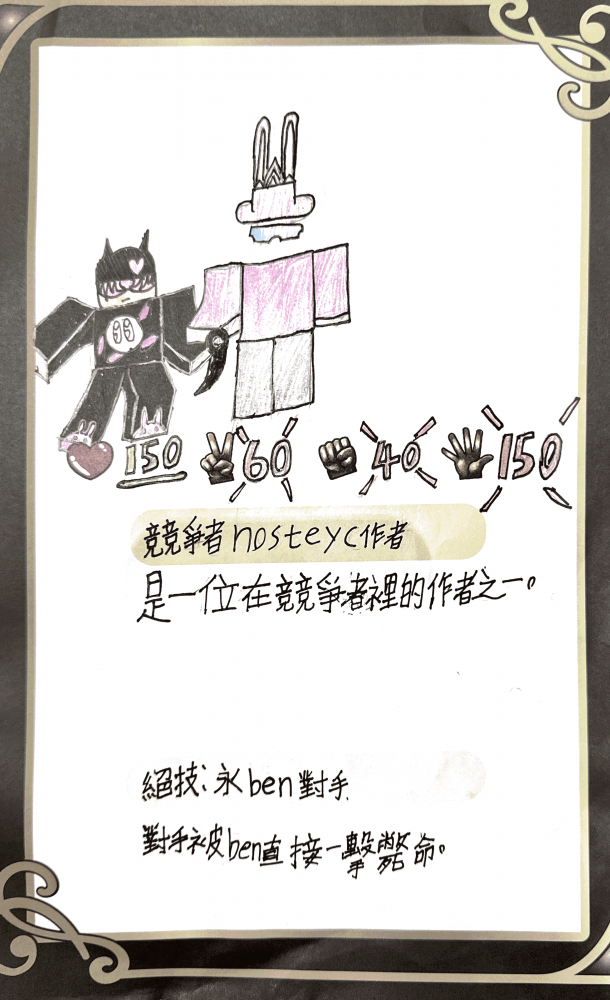 150 60 40 150
競爭者nosteyc作者
是一位在競爭者裡的作者之一。
絕技:永ben對手
對手被ben直接一擊斃命。